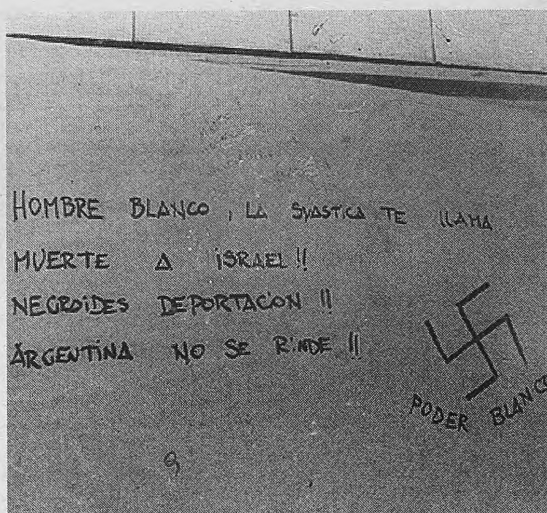 HOMBRE BLANCO, LA SVASTICA TE LLAMA
MUERTE A iSRAEL!!
NEGROiDES DEPORTACION !!
ARGENTINA NO SE RiNDE !!
PODER BLANCO